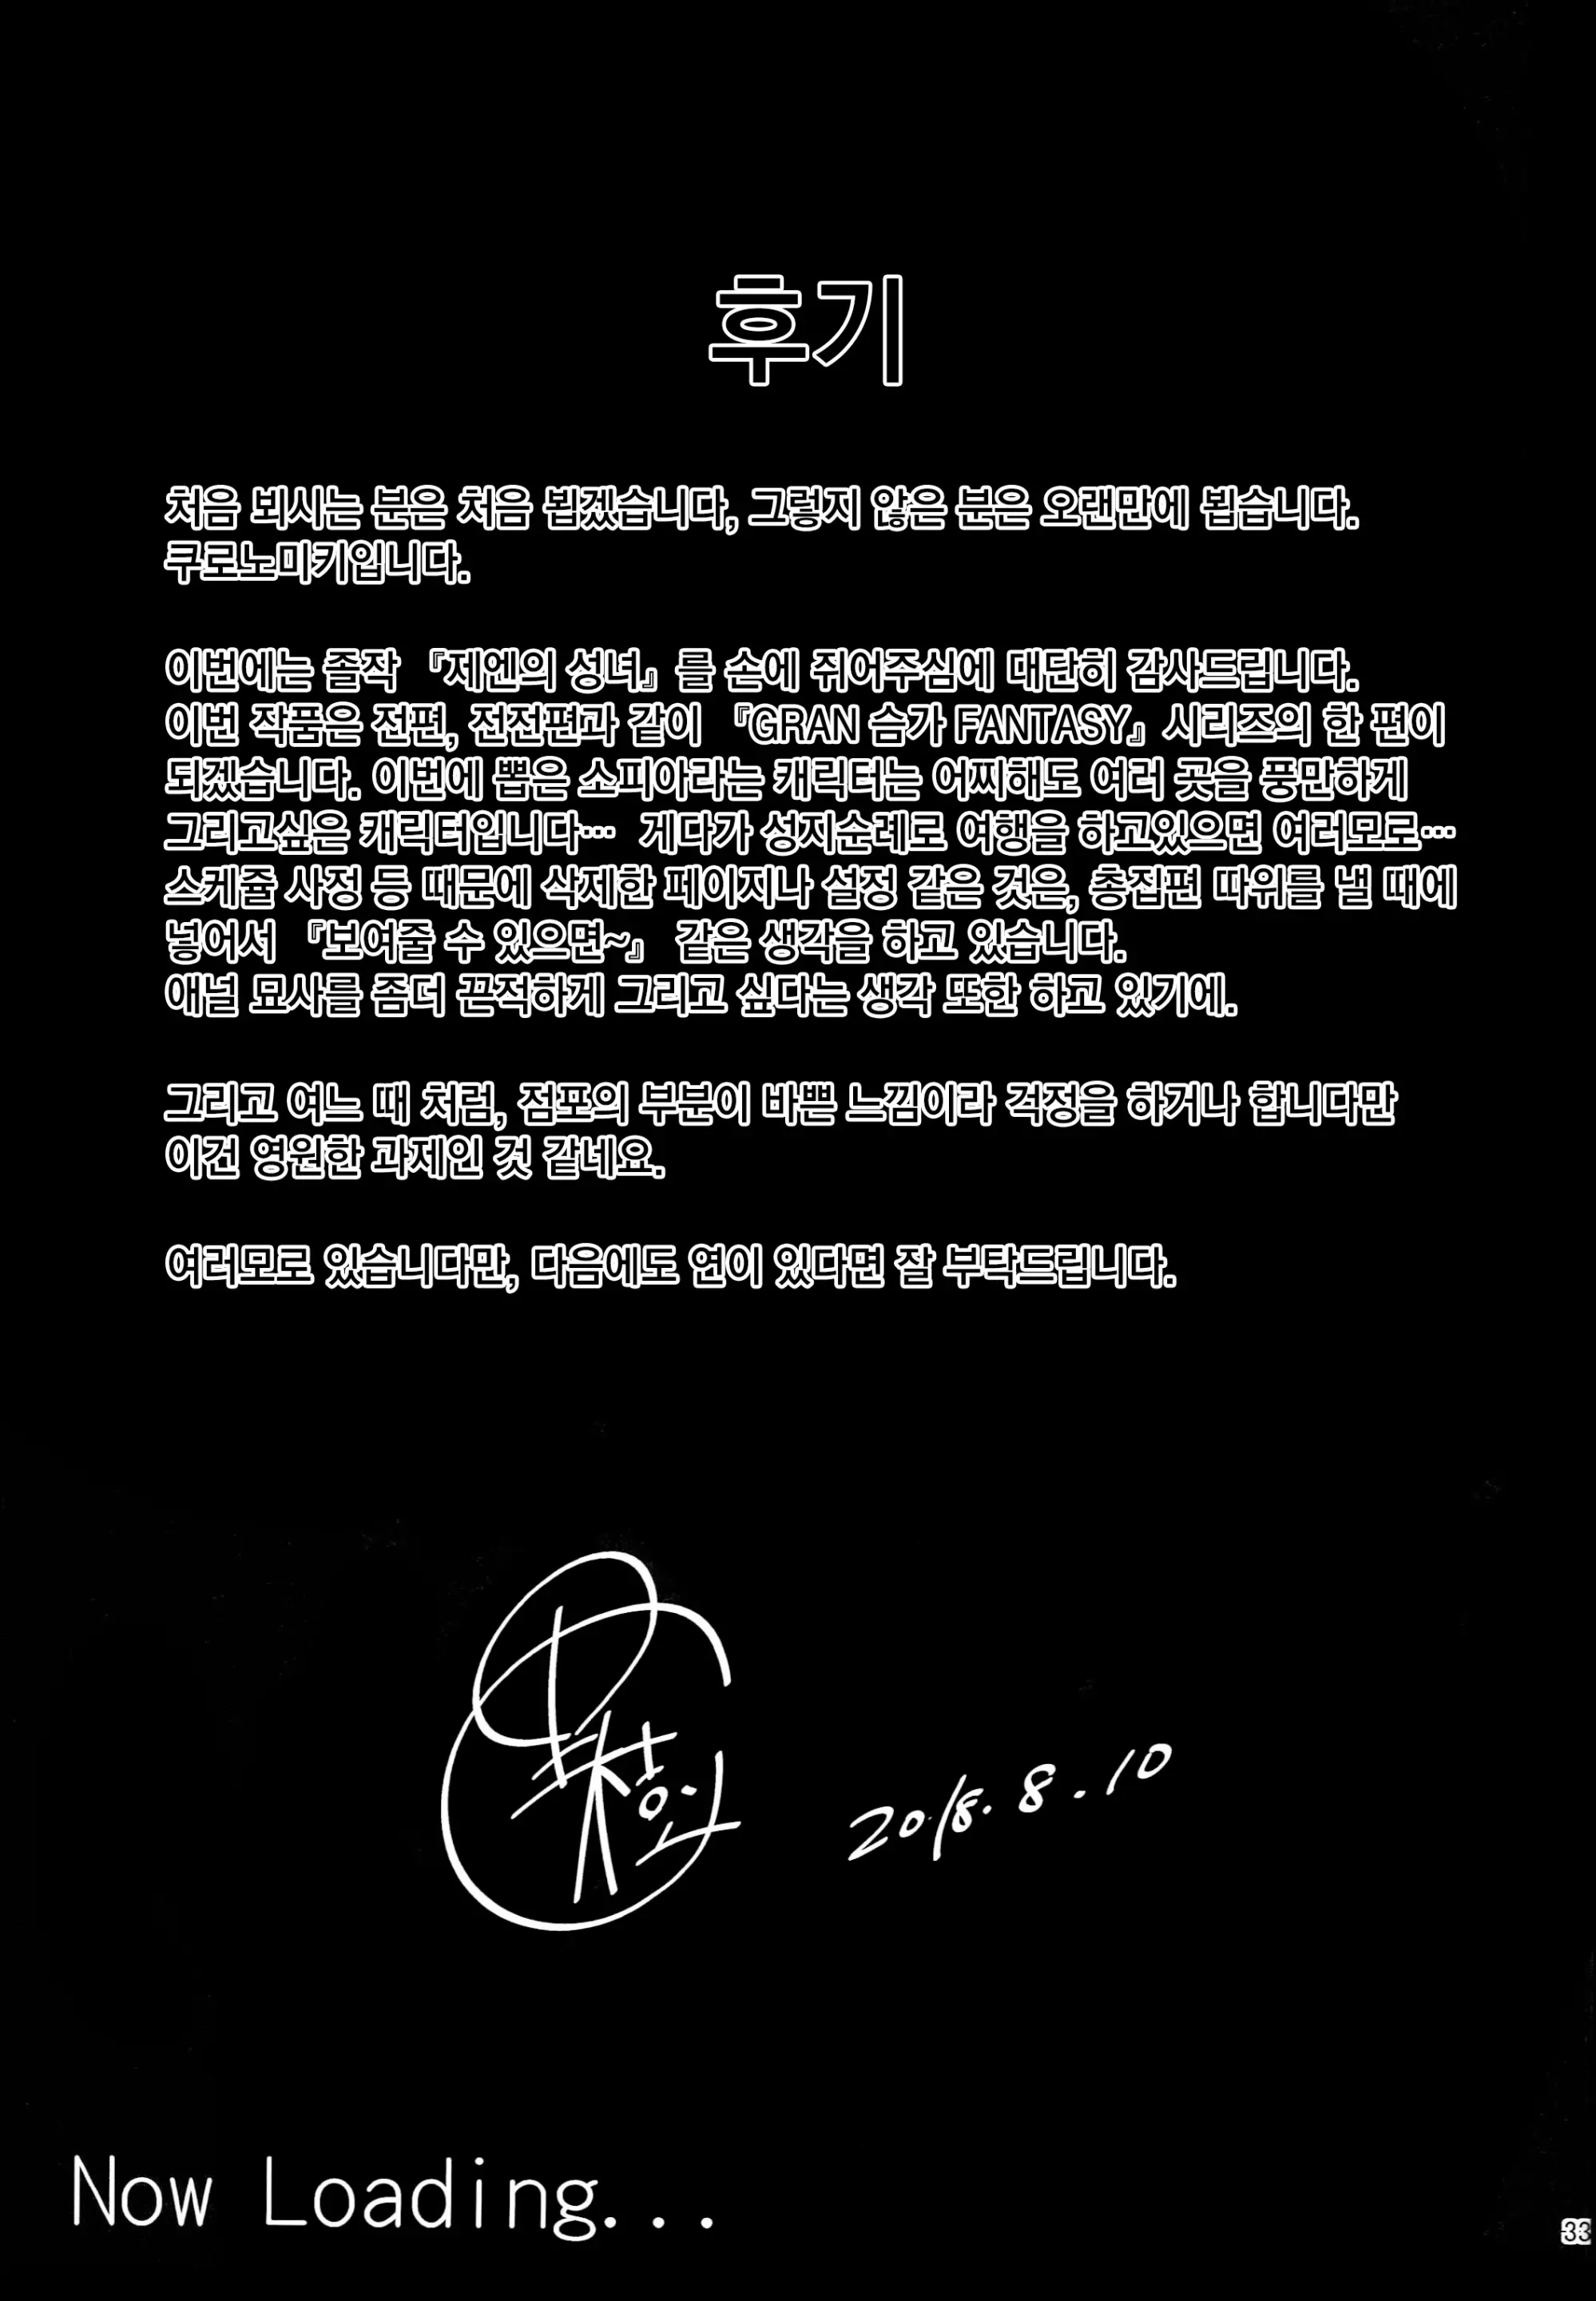 후기
처음 뵈시는 분은 처음 뵙겠습니다, 그렇지 않은 분은 오랜만에 뵙습니다.
쿠로노미키입니다.
이번에는 졸작 『제엔의 성녀』를 손에 쥐어주심에 대단히 감사드립니다.
이번 작품은 전편, 전전편과 같이 『GRAN 슴가 FANTASY』시리즈의 한 편이
되겠습니다. 이번에 뽑은 소피아라는 캐릭터는 어찌해도 여러 곳을 풍만하게
그리고싶은 캐릭터입니다… 게다가 성지순례로 여행을 하고있으면 여러모로…
스케쥴 사정 등 때문에 삭제한 페이지나 설정 같은 것은, 총집편 따위를 낼 때에
넣어서 『보여줄 수 있으면~』 같은 생각을 하고 있습니다.
애널 묘사를 좀더 끈적하게 그리고 싶다는 생각 또한 하고 있기에.
그리고 여느 때 처럼, 점포의 부분이 바쁜 느낌이라 걱정을 하거나 합니다만
이건 영원한 과제인 것 같네요.
여러모로 있습니다만, 다음에도 연이 있다면 잘 부탁드립니다.
2018.8.10
Now Loading...
33